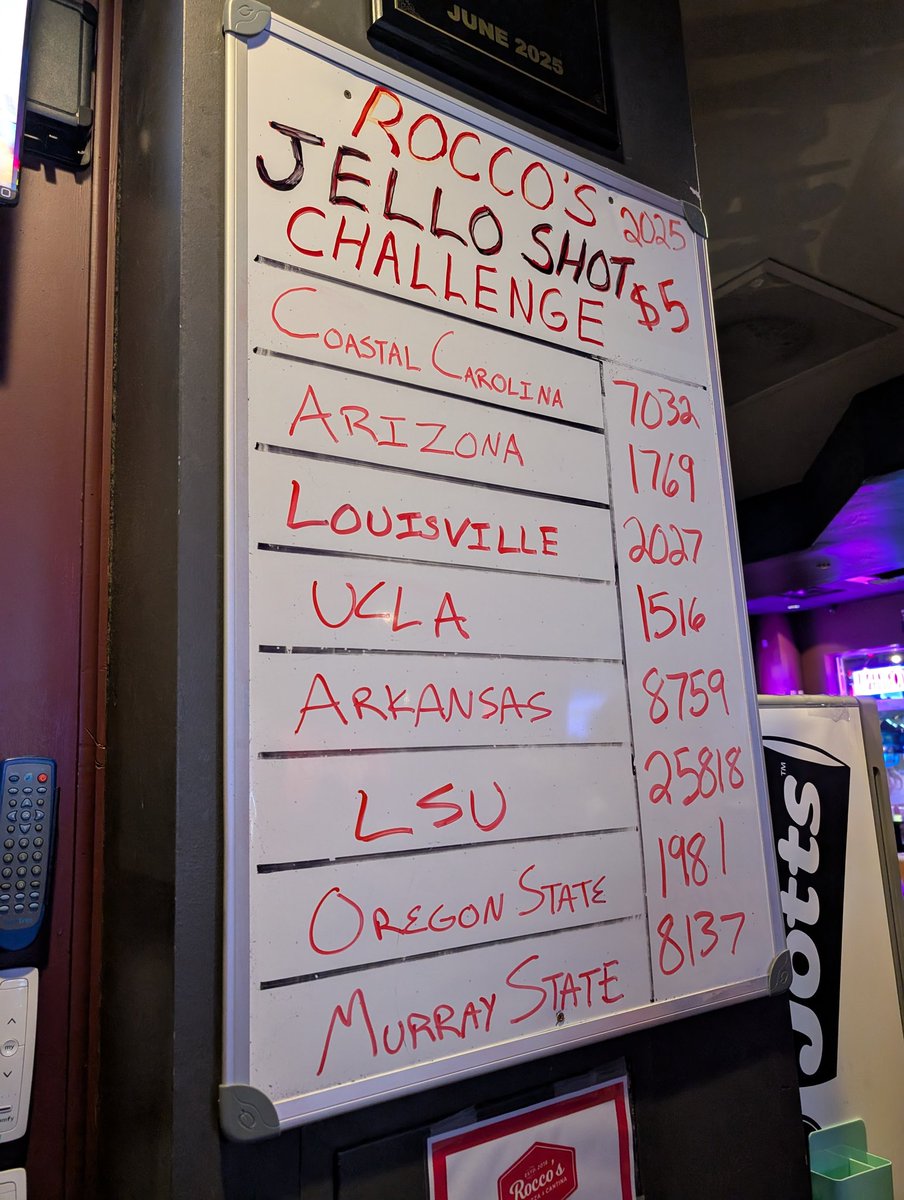 JUNE 2025
ROCCO'S 2025
JELLO SHOT
CHALLENGE $5
COASTAL CAROLINA 7032
ARIZONA 1769
LOUISVILLE 2027
UCLA 1516
ARKANSAS 8759
LSU 25818
OREGON STATE 1981
MURRAY STATE 8137
Jotts™
my
Rocco's
CANTINA